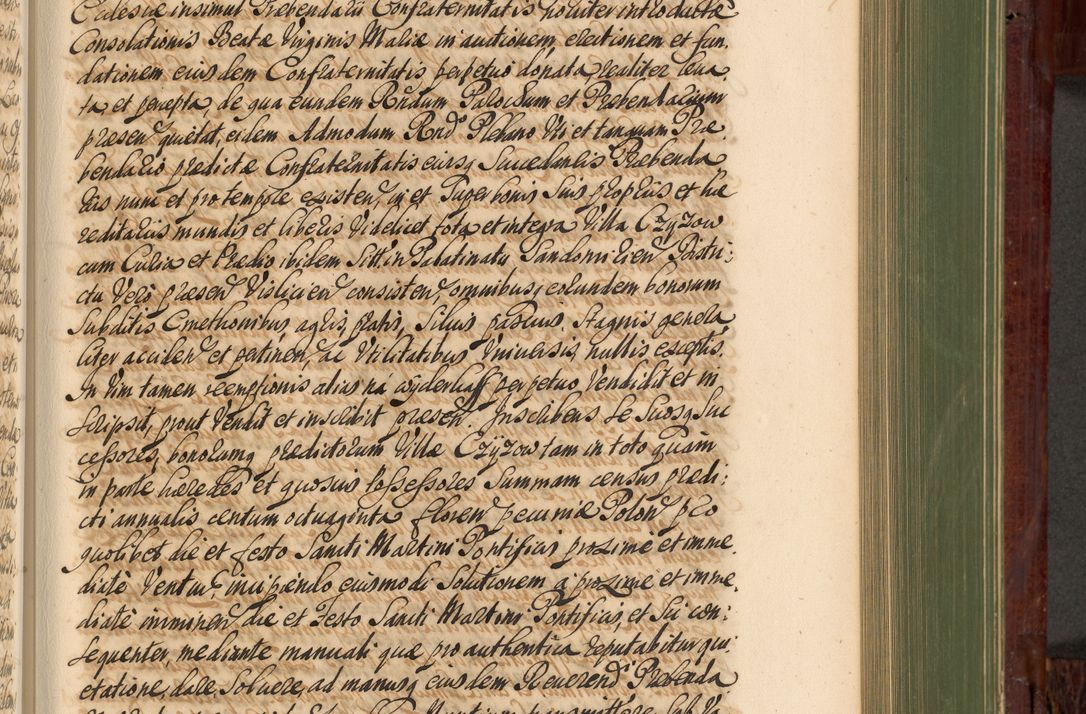 Ecclesiae insimul Praebendarii Confraternitatis noviter introductae
Consolationis Beatae Virginis Mariae in auctionem erectionem et fun,
dationem eiusdem Confraternitatis perpetuò donata realiter leva,
ta, et percepta, de qua eundem Rndum Parochum et Praebendarium
praesen quietat, eidem Admodum Rndo Plebano Uti et tanquam Prae
bendario praedictae Confraternitatis eiusq Succedaneis Praebenda
riis nunc et pro tempore existen, in et Super bonis Suis propriis et hae
reditariis mundis et liberis Videlicet tota et integra Villa Czyzow
cum Curia et Praedio ibidem Sitt in Palatinatu Sandomirien Distri:
ctu Vero praesen Vislicien consisten, omnibusq eorundem bonorum
Subditis Cmethonibus agris, pratis, Silvis pascuis, Stagnis genera
liter acciden et pertinen, ac Utilitatibus Universis, nullis exceptis,
In Vim tamen reemptionis alias na wyderkaff perpetuo Vendidit et in
scripsit, prout Vendit et inscribit praesen. Inscribens Se Suosq Suc
cessores, bonorumq praedictorum Villae Czyzow tam in toto quam
in parte haeredes et quosvis Possessores Summam census praedi:
cti annualis centum octuaginta floren pecuniae Polon pro
quolibet die et festo Sancti Martini Pontificis proximè et imme.
diatè Ventur, incipiendo eiusmodi Solutionem a proximè et imme
diatè imminen die et Festo Sancti Martini Pontificis, et Sic con:
sequenter, mediante manuali quae pro authentica reputabitur qui
etatione, dare, Solvere, ad manusq eiusdem Reverend Praebenda